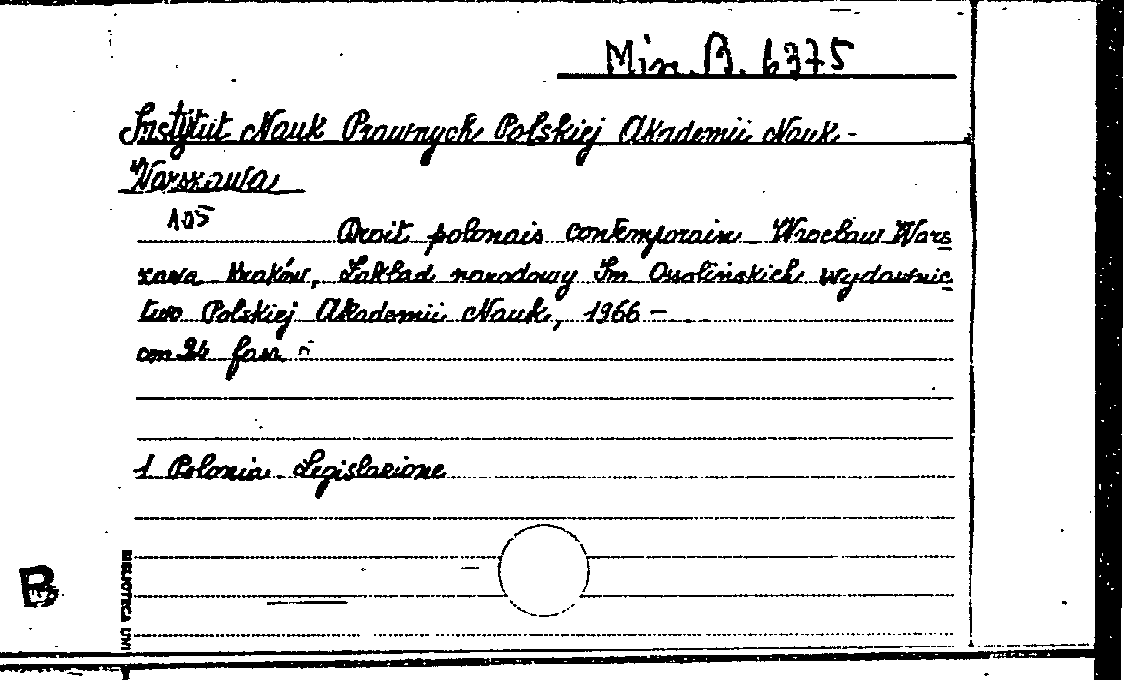 Min. B. 6375
Instytut Nauk Prawnych Polskiej Akademii Nauk -
Warszawa
105
Droit polonais contemporain - Wrocław Wars
zawa Kraków, Zakład narodowy Im Ossolińskich Wydawnic
two Polskiej Akademii Nauk, 1966 -
cm 24 fasc.
1 Polonia - Legislazione
B
BIBLIOTECA UNI